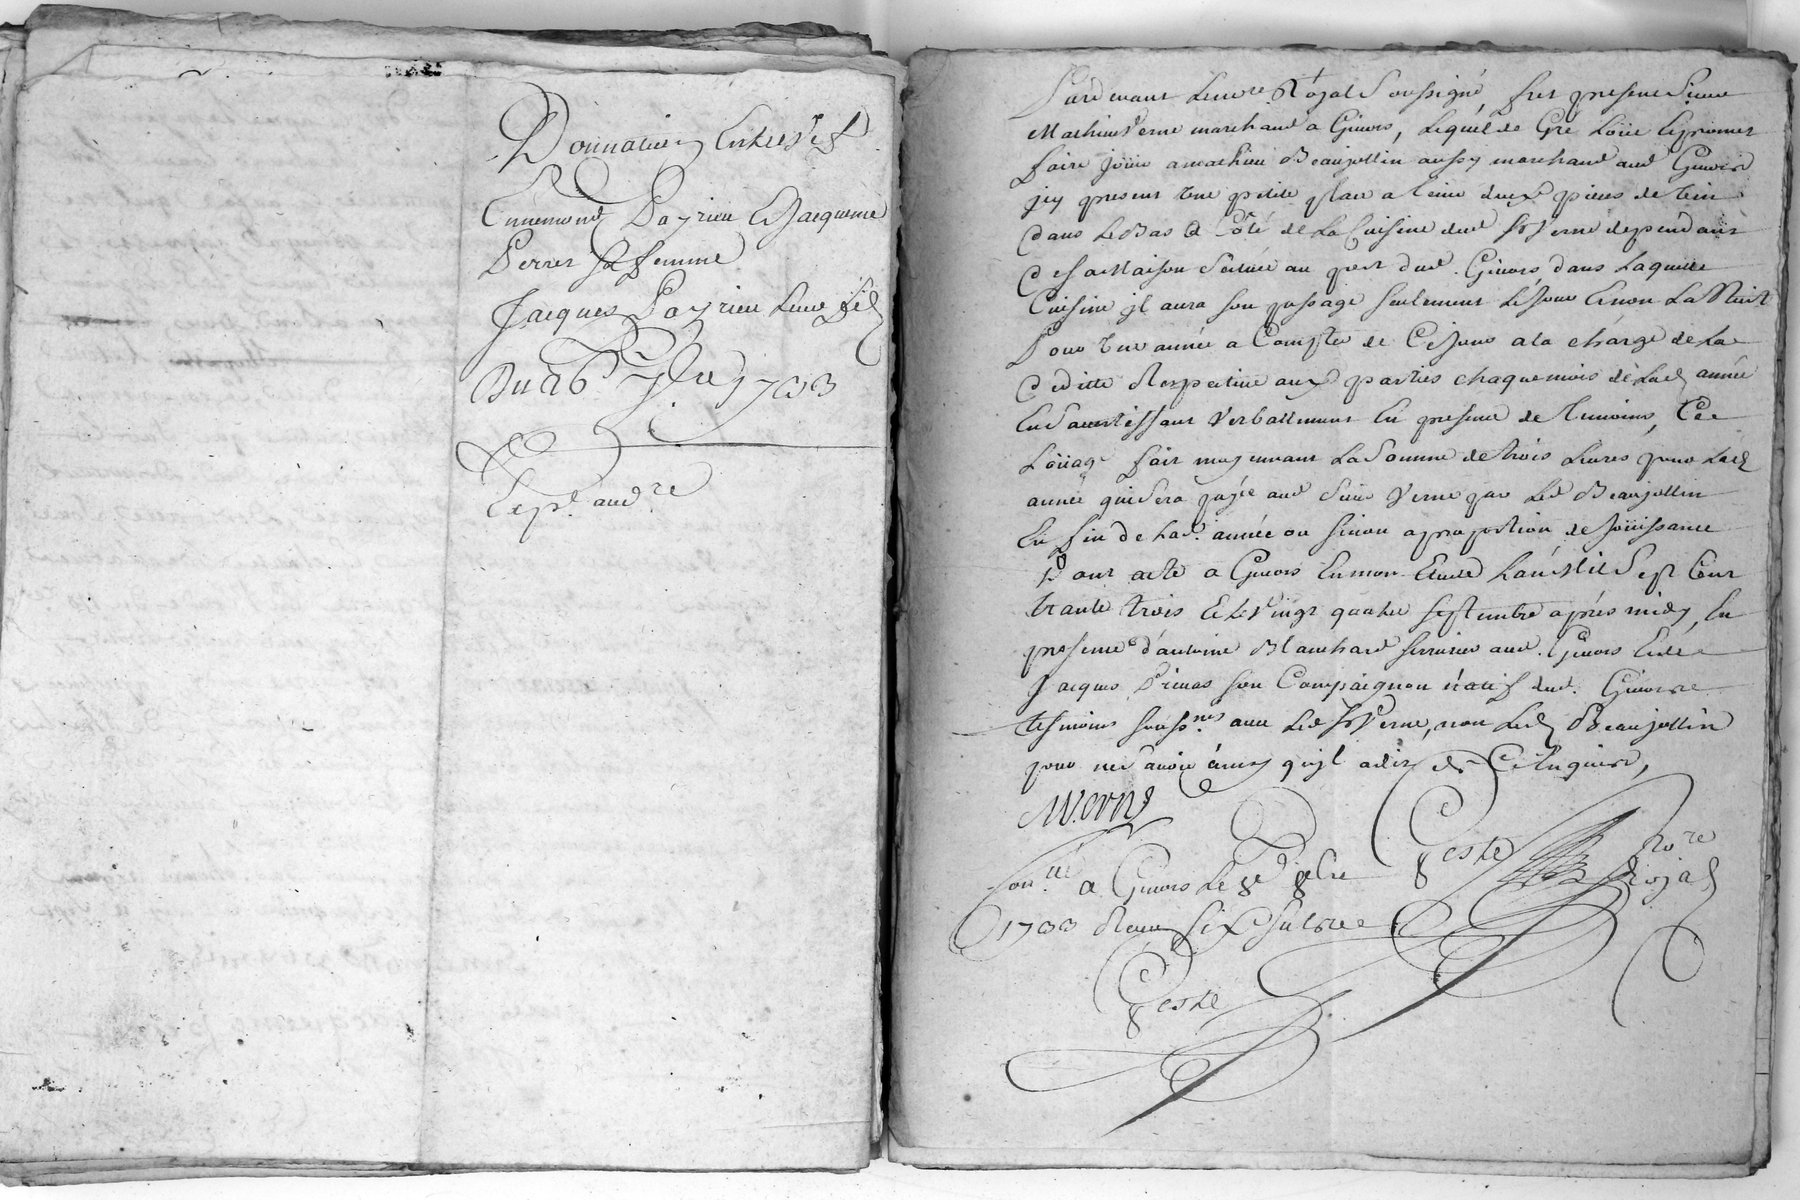 Donnation Entre Sr
Ennemond Payrieu et Jacqueme
Perret sa femme
Jacques Payrieu leur fils
Du 26e 7bre 1733
Exp.
Pardevant le nore Royal soussigné, fut present sieur
Mathieu Verne marchand a Givors, lequel de gré loüe et promet
faire joüir a mathieu Beaujollin aussy marchand aud Givors
jcy present une petite place a tenir deux pieces de vin
dans le bas a Coté de la Cuisine dud Sr Verne dependant
de sa Maison scituée au port dud. Givors, dans laquelle
Cuisine jl aura son passage seulement le Jour et non la Nuit
Pour une année a Compter de Ce jour a la charge de la
deditte Respective aux parties chaque mois de lad année
En S'avertissant Verballement En presence de temoins, Ce
Loüage fait moyennant la somme de trois Livres pour lad
année qui sera payée aud sieur Verne par led Beaujollin
En fin de lad. année ou sinon a proportion de Joüissance
Dont acte a Givors En mon Etude L'an Mil Sept Cent
trante trois et le Vingt quatre septembre après midy, En
presence d'antoine Blanchard serrurier aud. Givors Et de
Jacques Primas son Compaignon natif dud. Givors
tesmoins souss.nés avec led Sr Verne, non led Beaujollin
pour ne sçavoir ainsy qu'jl a dit de Ce Enquis,
MVerne
Geste Nore Royal
Con.llé a Givors le 8e 8bre
1733 Reçeu six sols
Geste